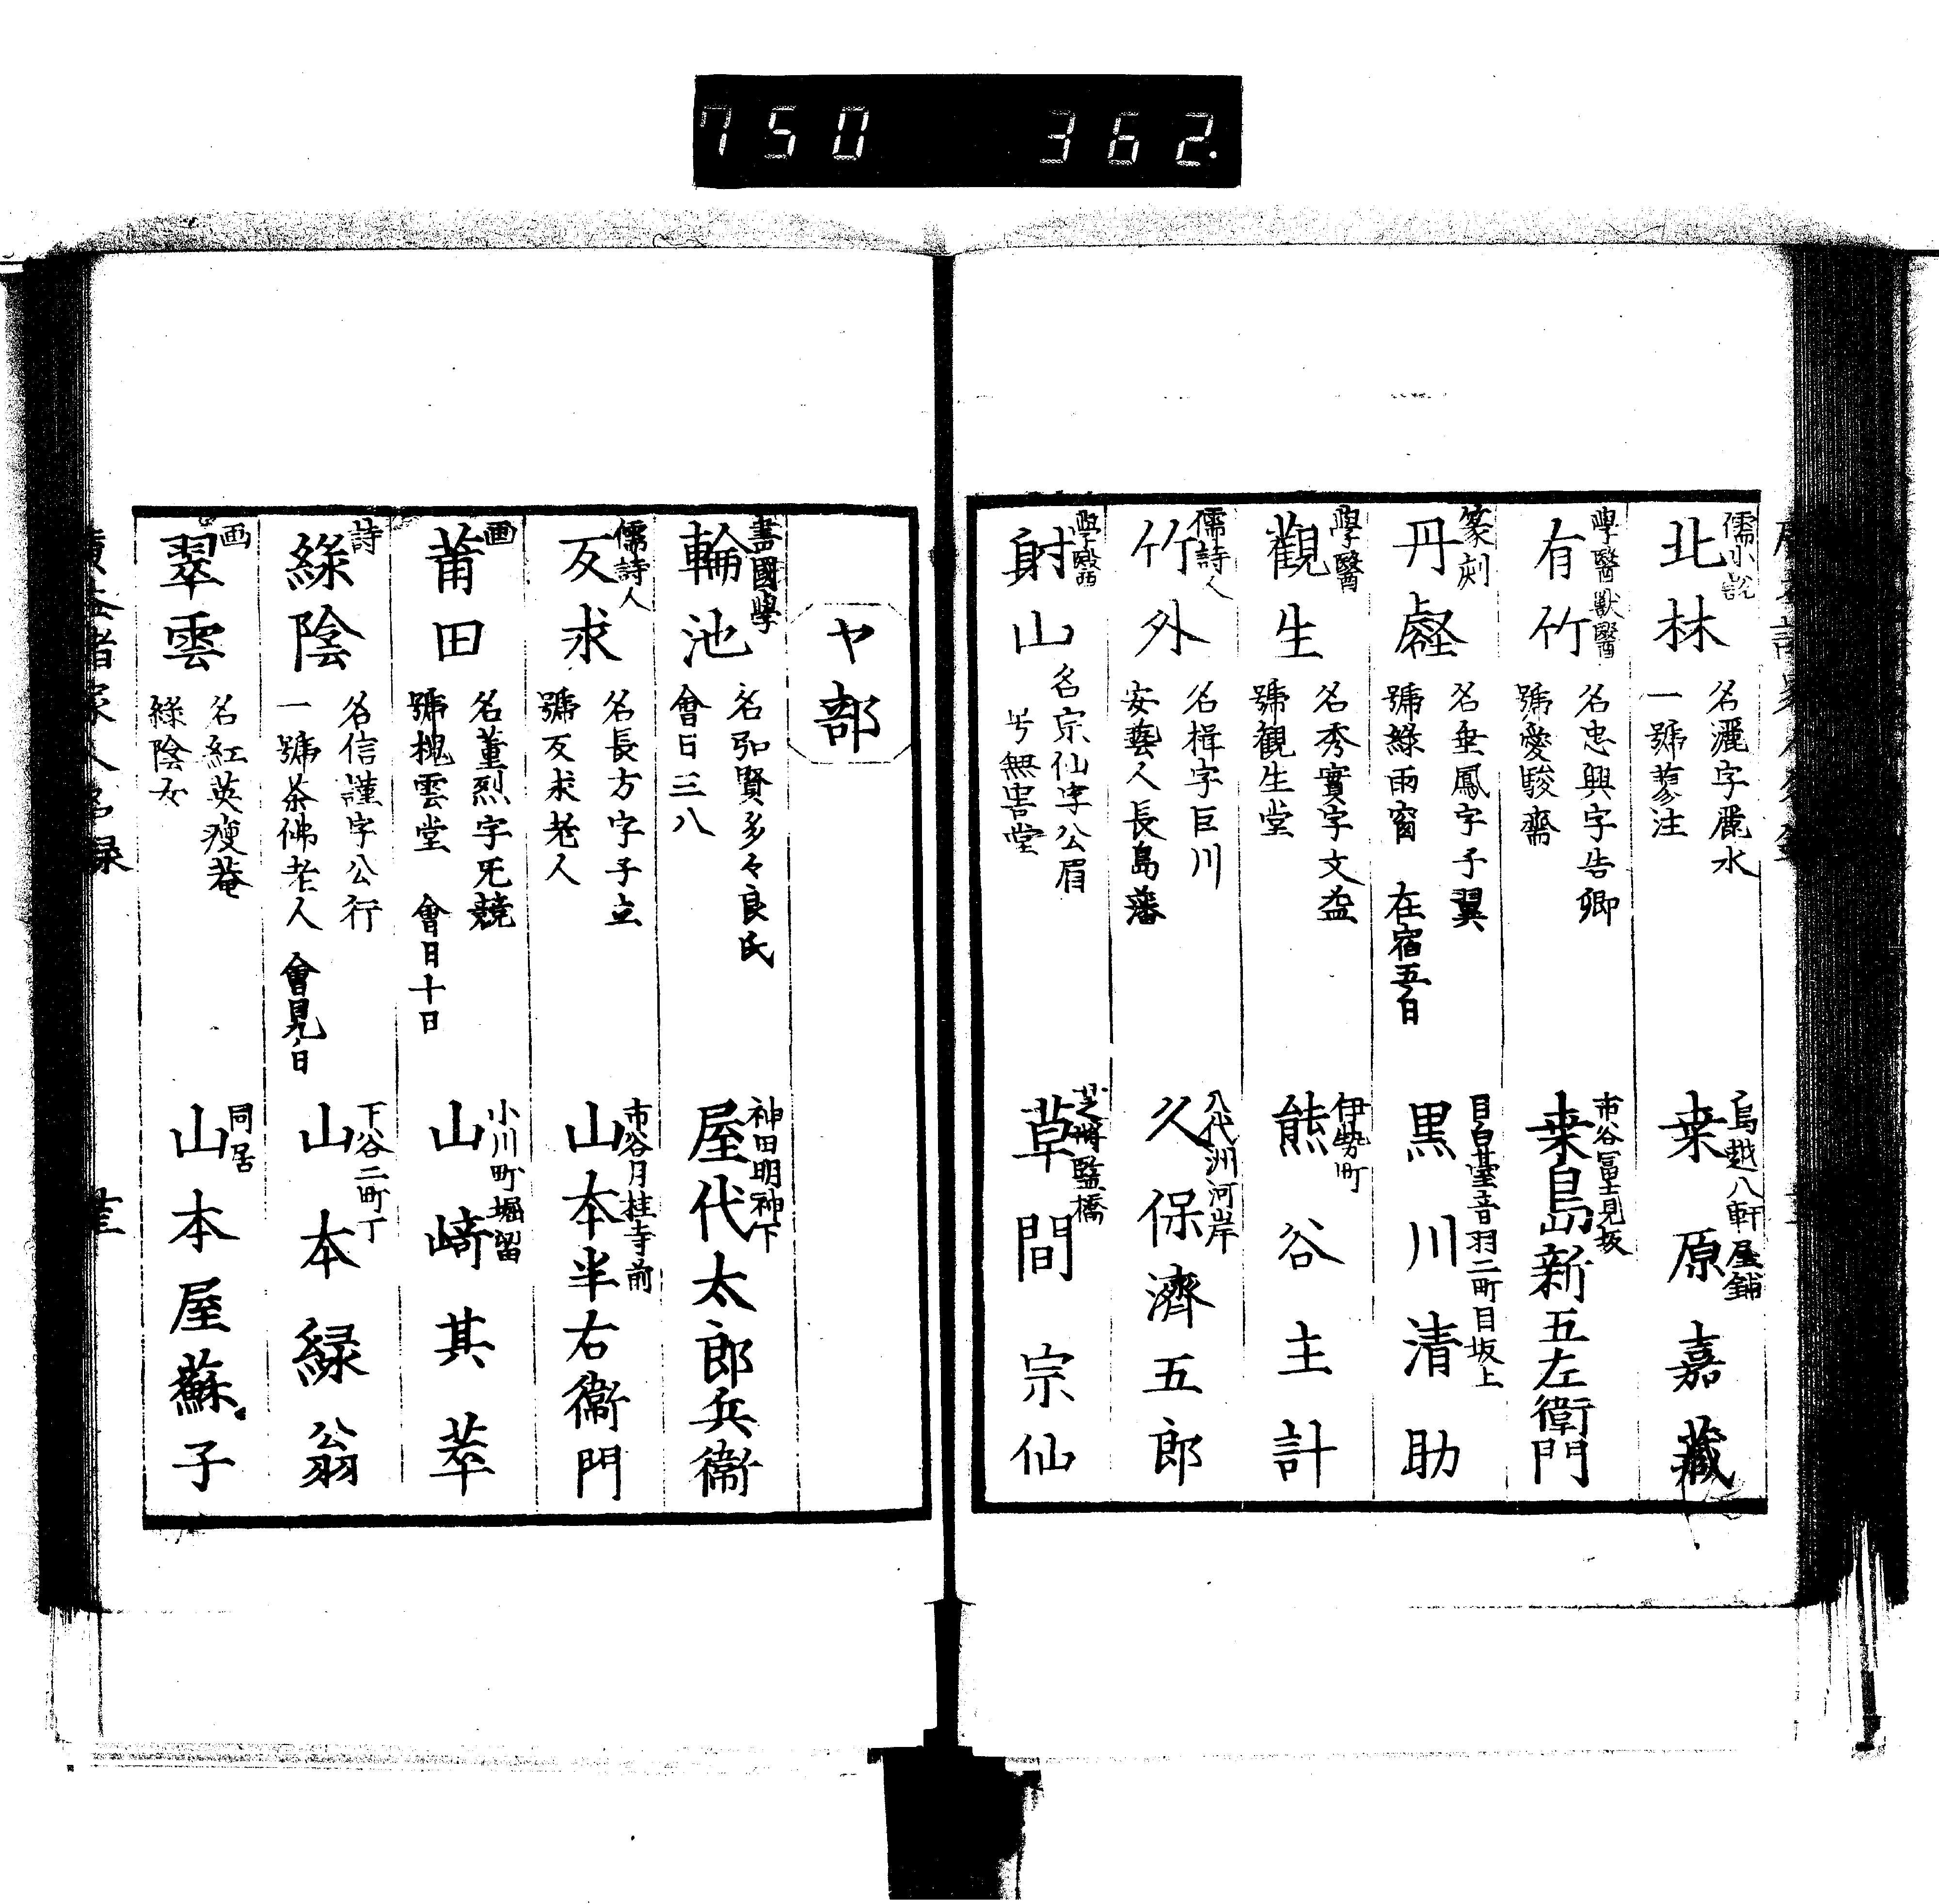 750 362.
儒小説
北林
名灑字麗水
一號蓼注
鳥越八軒屋鋪
桒原嘉藏
學醫獸醫
有竹
名忠興字告卿
號愛駿齋
市谷冨士見坂
桒島新五左衛門
篆刻
丹壑
名垂鳳字子翼
號綠雨窗 在宿五白
目白臺音羽二町目坂上
黒川清助
學醫
觀生
名秀實字文益
號觀生堂
伊勢町
熊谷主計
儒詩人
竹外
名楫字巨川
安藝人長島藩
八代洲河岸
久保濟五郎
學醫
射山
名宗仙字公眉
号無害堂
芝將監橋
草間宗仙
ヤ部
書國學
輪池
名弘賢多々良氏
會日三八
神田明神下
屋代太郎兵衞
儒詩人
反求
名長方字子立
號反求老人
市谷月桂寺前
山本半右衞門
画
莆田
名董烈字旡競
號槐雲堂 會日十日
小川町堀留
山﨑其萃
詩
綠陰
名信謹字公行
一號茶佛老人 會見白
下谷二町丁
山本緑翁
画
翠雲
名紅英瘦菴
綠陰女
同居
山本屋蘇子
廣益諸家人名録